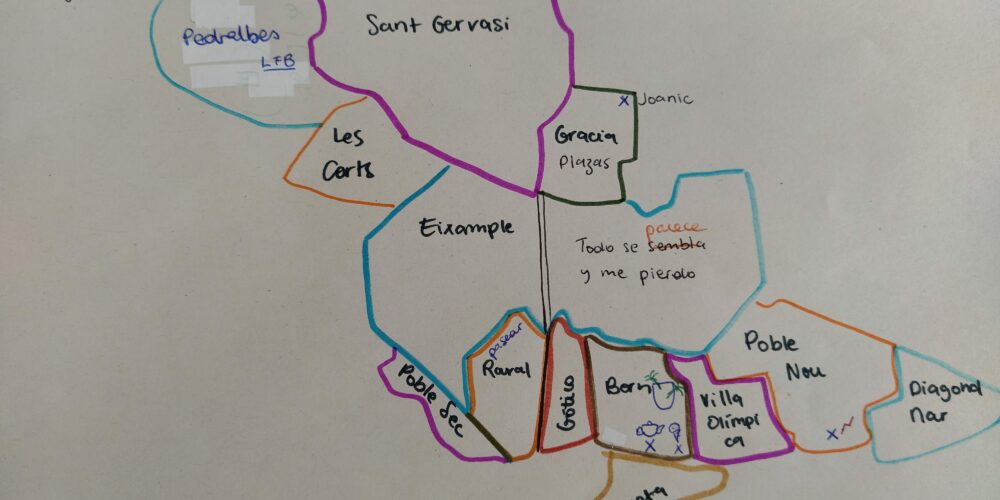 Sant Gervasi
Pedralbes
LFB
Joanic
Les
Corts
Gracia
Plazas
Eixample
parece
Todo se sembla
y me pierdo
Poble Sec
pasear
Raval
Gótico
Born
Villa
Olímpi
ca
Poble
Nou
Diagonal
Mar